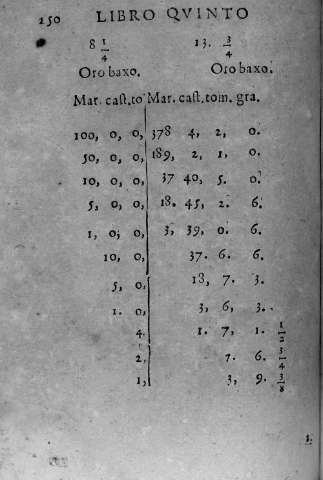 250 LIBRO QVINTO
8 1/4 13. 3/4
Oro baxo. Oro baxo.
Mar. cast. to Mar. cast. tom. gra.
100, 0, 0, 378 4, 2, 0.
50, 0, 0, 189, 2, 1, 0.
10, 0, 0, 37 40, 5. 0.
5, 0, 0, 18. 45, 2. 6.
1, 0; 0, 3, 39, 0. 6.
10, 0, 37. 6. 6.
5, 0, 18, 7. 3.
1. 0, 3, 6, 3.
4. 1. 7, 1. 1/2
2. 7. 6. 3/4
1, 3, 9. 3/8